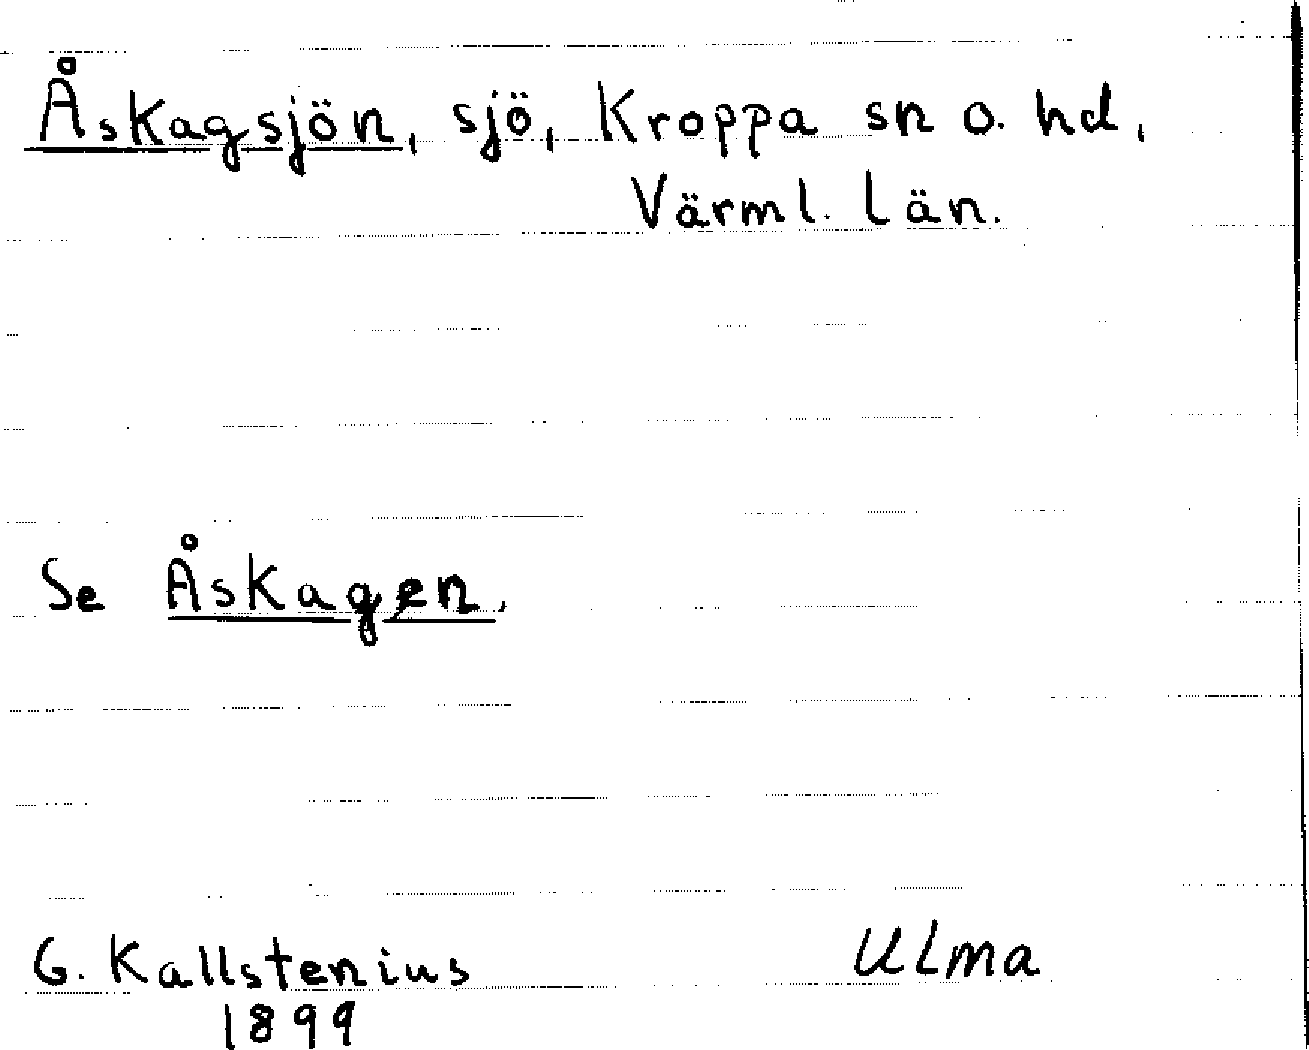 Åskagsjön, sjö, Kroppa sn o. hd,
Värml. län.
Se Åskagen.
G. Kallstenius ULma
1899